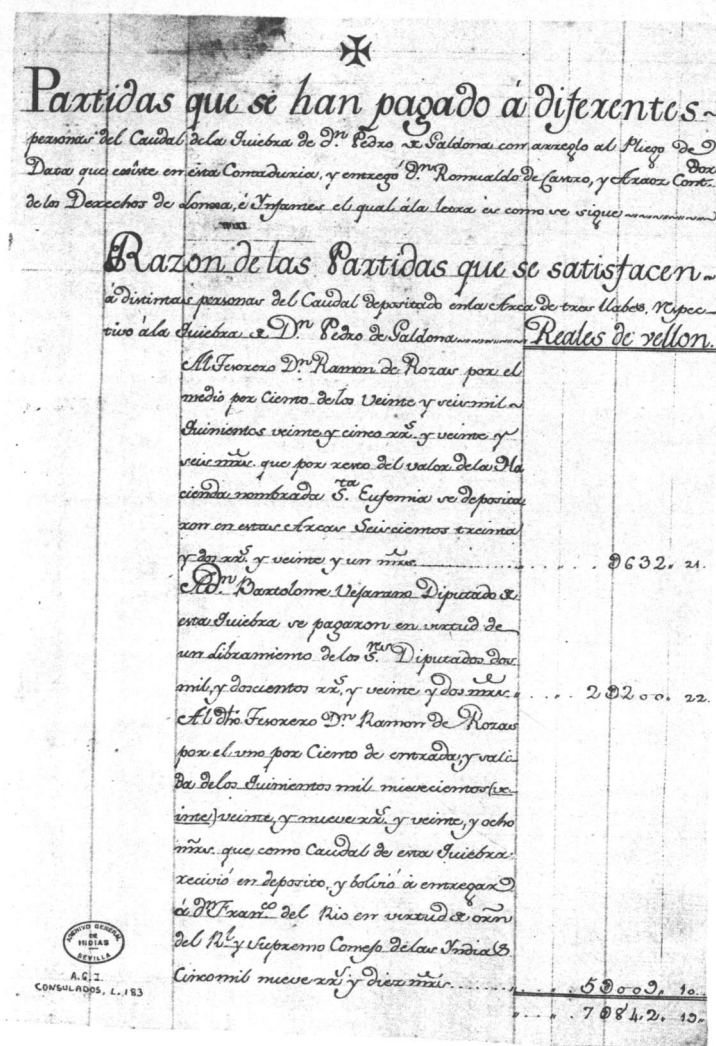 Partidas que se han pagado á diferentes
personas del Caudal dela Quiebra de Dn. Pedro de Saldona con arreglo al Pliego de
Data que existe en esta Contaduria, y entregó Dn. Romualdo de Castro, y Araoz Contdor.
delos Derechos de Lonxa, é Ynfantes el qual ála letra es como se sigue
Razon de las Partidas que se satisfacen
á distintas personas del Caudal depositado enla Arca de tres llabes, respec-
tivo ála Quiebra de Dn. Pedro de Saldona Reales de vellon.
Al Tesorero Dn. Ramon de Rozas por el
medio por Ciento delos Veinte y seis mil
Quinientos veinte y cinco rrs. y veinte y
seis mrs. que por resto del valor dela Ha
cienda nombrada Sta. Eufemia se deposita
ron en estas Arcas Seiscientos treinta
y dos rrs. y veinte y un mrs. 0632. 21.
A Dn. Bartolome Vejarano Diputado de
esta Quiebra se pagaron en virtud de
un Libramiento delos Sres. Diputados dos
mil, y doscientos rrs. y veinte y dos mrs. 20200. 22.
Al dho. Tesorero Dn. Ramon de Rozas
por el uno por Ciento de entrada, y sali
da delos Quinientos mil nuevecientos (ve
inte) veinte, y nueve rrs. y veinte, y ocho
mrs. que como Caudal de esta Quiebra
recivió en deposito, y bolvió á entregar
á Dn. Franco. del Rio en virtud de orn
del Rl. y Supremo Consejo delas Indias
Cinco mil nueve rrs. y diez mrs. 50009. 10.
70842. 19.
ARCHIVO GENERAL
DE
INDIAS
SEVILLA
A.G.I.
CONSULADOS, L. 183